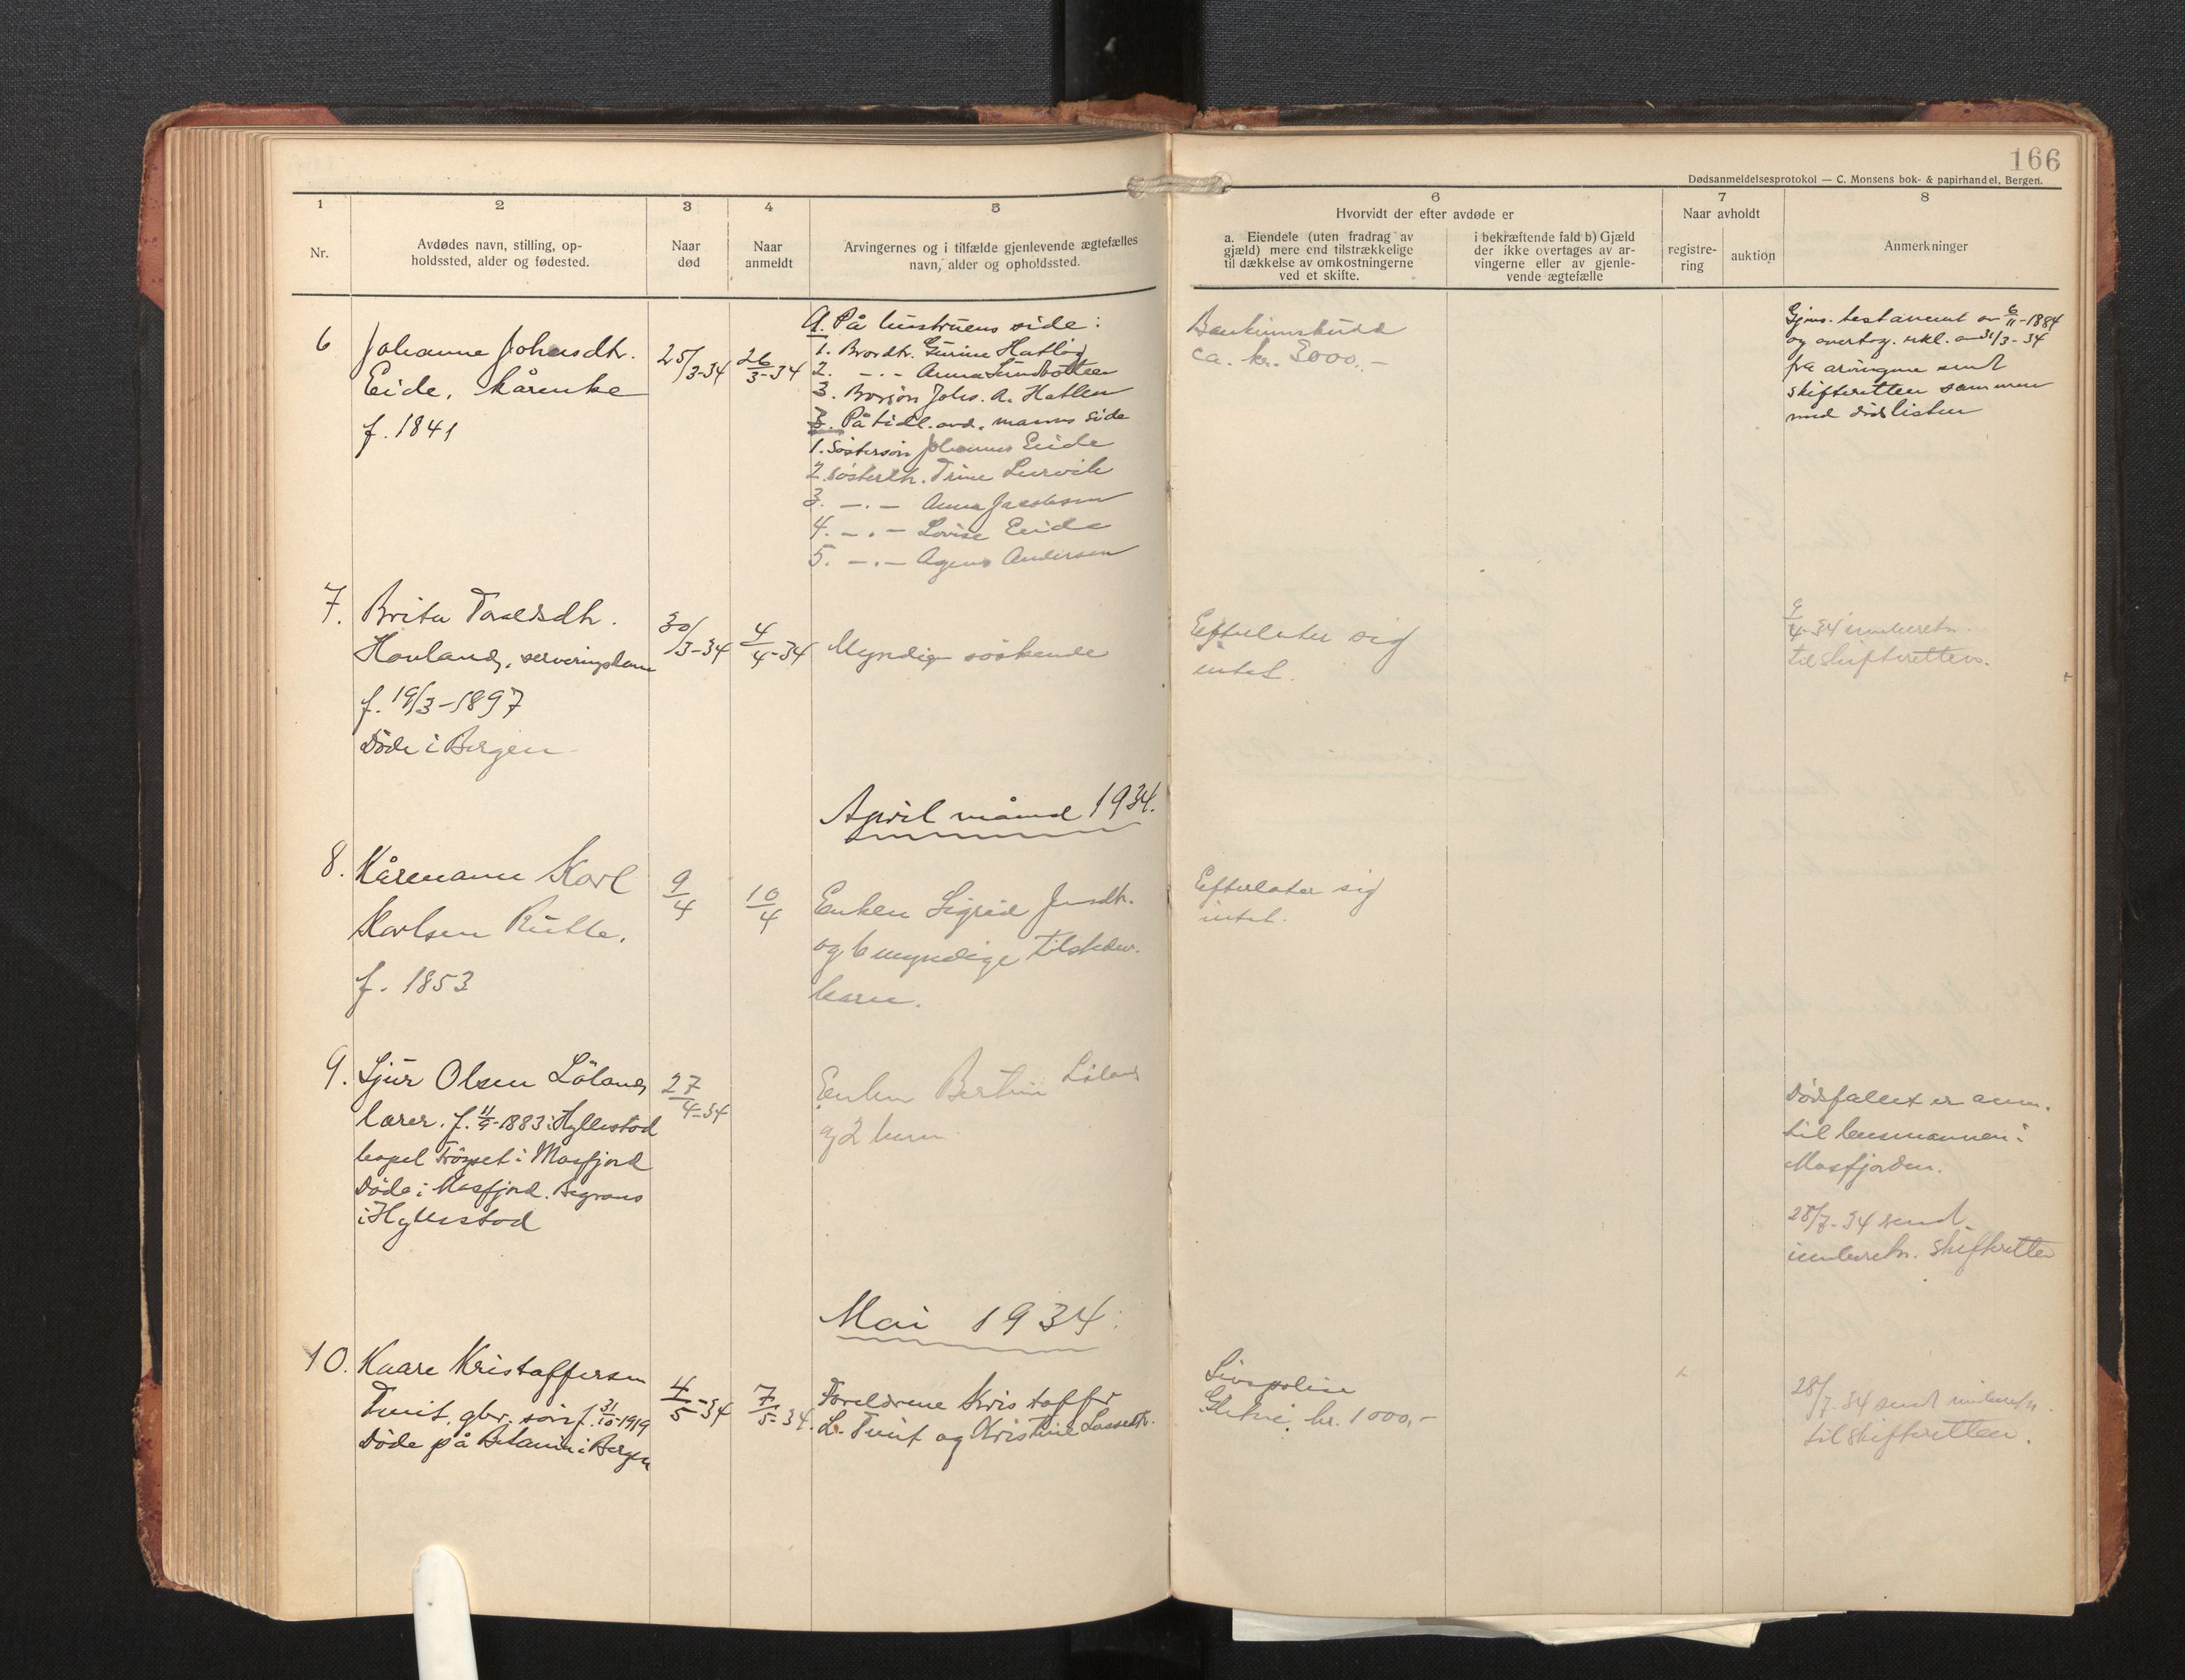 166
Dødsanmeldelsesprotokol — C. Monsens bok- & papirhandel, Bergen.
1
2
3
4
5
6
7
8
Nr.
Avdødes navn, stilling, op-
holdssted, alder og fødested.
Naar
død
Naar
anmeldt
Arvingernes og i tilfælde gjenlevende ægtefælles
navn, alder og opholdssted.
Hvorvidt der efter avdøde er
a. Eiendele (uten fradrag av
gjæld) mere end tilstrækkelige
til dækkelse av omkostningerne
ved et skifte.
i bekræftende fald b) Gjæld
der ikke overtages av ar-
vingerne eller av gjenle-
vende ægtefælle
Naar avholdt
registre-
ring
auktion
Anmerkninger
6
Johanne Johansdtr.
Eide, kårenke
f. 1841
25/3-34
26/3-34
A. På hustruens side:
1. Brordtr. Gurine Hatlöy
2. -.- Anna
3. Brorsön Johs. A. Hatlen
På tidl. avd. manns side
1. Søstersön Johannes Eide
2. søsterdtr. Trine Lervik
3. -.- Anna Jacobsen
4. -.- Lovise Eide
5. -.- Agnes Andersen
Bankinnskudd
ca. kr. 3000.-
Gjens. testament av 6/11-1884
og overtag. erkl. av 31/3-34
fra arvingene sendt
skifteretten sammen
med dödslisten
7.
Brita
Hovland, serveringsdame
f. 19/3-1897
Döde i Bergen
30/3-34
4/4-34
Myndige söskende
Efterlater sig
intet.
9/4-34 innberetn.
til skifteretten.
April måned 1934.
8.
Kåremann Karl
Karlsen Rutle.
f. 1853
9/4
10/4
Enken Sigrid Jensdtr.
og 6 myndige
barn.
Efterlater sig
intet.
9.
Sjur Olsen Löland
lærer. f. 1883 i Hyllestad
bopel i Masfjord
Döde i Masfjord. Begraves
i Hyllestad
27/4-34
Enken Løland
og 2 barn
Dödsfallet er anm.
til lensmannen i
Masfjorden.
28/7-34 sendt
innberetn. skifteretten
Mai 1934.
10.
Kaare Kristoffersen
Tveit, gbr. sön f. 31/10-1919
Döde på Betanien i Bergen
4/5-34
7/5-34.
Foreldrene Kristoffer
L. Tveit og Kristine Lassedtr.
Livspolise
kr. 1000,-
28/7-34 sendt innberetn.
til skifteretten.